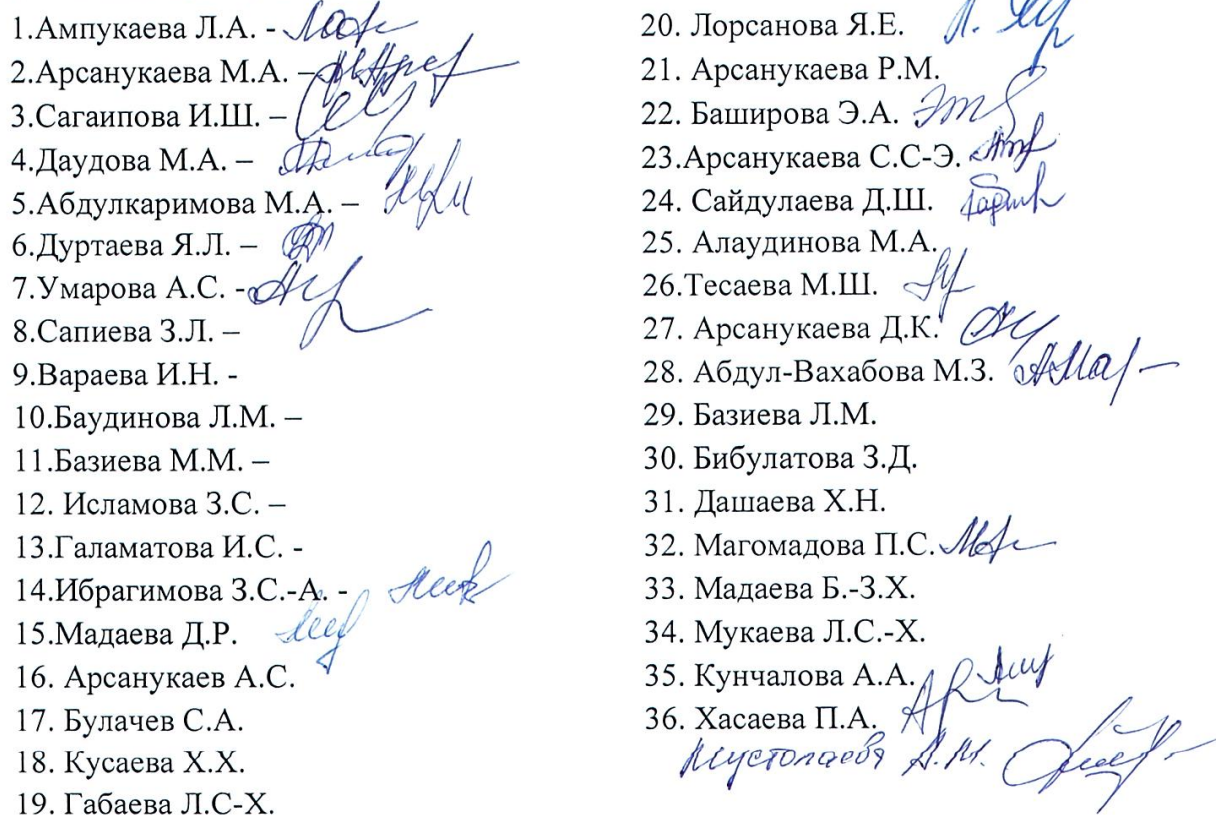 1.Ампукаева Л.А. -
2.Арсанукаева М.А. –
3.Сагаипова И.Ш. –
4.Даудова М.А. –
5.Абдулкаримова М.А. –
6.Дуртаева Я.Л. –
7.Умарова А.С. -
8.Сапиева З.Л. –
9.Вараева И.Н. -
10.Баудинова Л.М. –
11.Базиева М.М. –
12. Исламова З.С. –
13.Галаматова И.С. -
14.Ибрагимова З.С.-А. -
15.Мадаева Д.Р.
16. Арсанукаев А.С.
17. Булачев С.А.
18. Кусаева Х.Х.
19. Габаева Л.С-Х.
20. Лорсанова Я.Е.
21. Арсанукаева Р.М.
22. Баширова Э.А.
23.Арсанукаева С.С-Э.
24. Сайдулаева Д.Ш.
25. Алаудинова М.А.
26.Тесаева М.Ш.
27. Арсанукаева Д.К.
28. Абдул-Вахабова М.З.
29. Базиева Л.М.
30. Бибулатова З.Д.
31. Дашаева Х.Н.
32. Магомадова П.С.
33. Мадаева Б.-З.Х.
34. Мукаева Л.С.-Х.
35. Кунчалова А.А.
36. Хасаева П.А.
Мустопаева А.М.